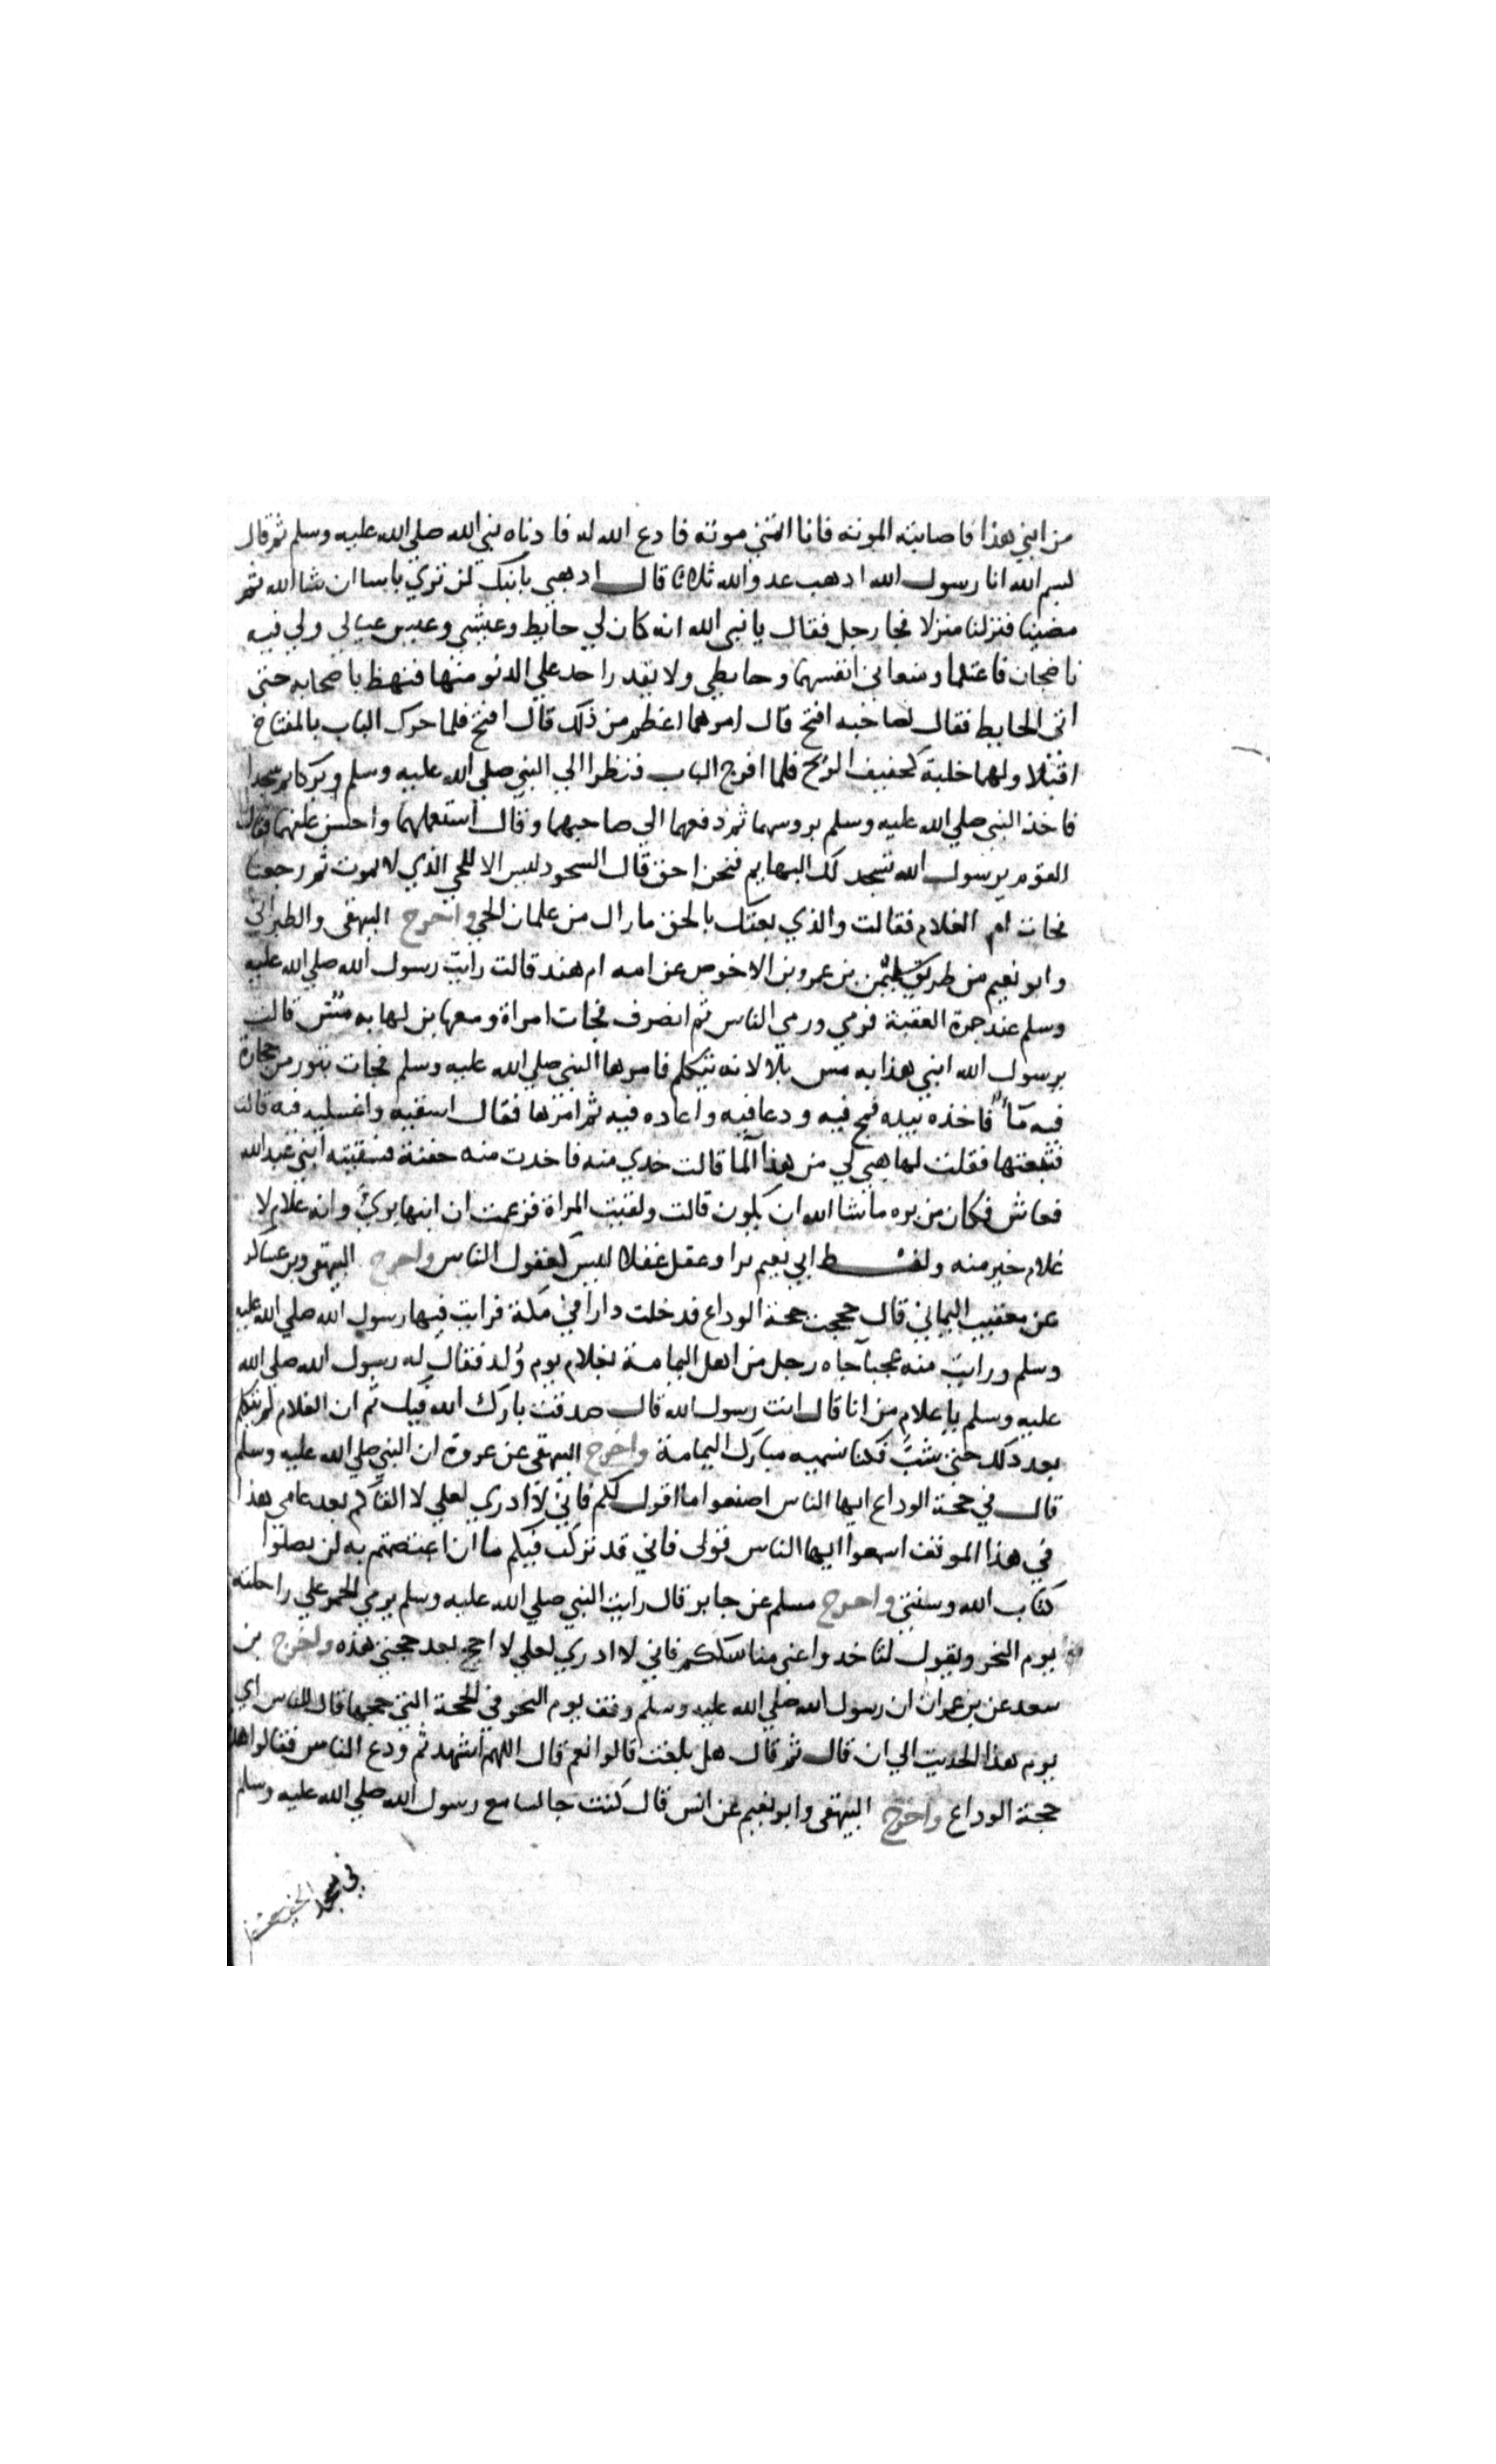 من ابني هذا فاصابته الموتة فانا اتمنى موته فادع الله له فادناه نبي الله صلي الله عليه وسلم ثم قال
بسم الله انا رسول الله اذهب عدو الله ثلاثا قال ادهبي بابنك لن تري باسا ان شا الله ثم
مضينا فنزلنا منزلا فجا رجل فقال يا نبي الله انه كان لي حايط وعيشي وعيش عيالي ولي فيه
ناضحان فاعتلما ومنعاني انفسهما وحايطي ولا يقدر احد علي الدنو منها فنهض باصحابه حتى
اتى الحايط فقال لصاحبه افتح قال امرهما اعظم من ذلك قال افتح فلما حرك الباب بالمفتاح
اقبلا ولهما جلبة كحفيف الريح فلما افرج الباب فنظرا الي النبي صلي الله عليه وسلم وبركا ثم سجدا
فاخذ النبي صلي الله عليه وسلم بروسهما ثم دفعهما الي صاحبهما وقال استعملهما واحسن علفهما فقال
القوم يرسول الله تسجد لك البهايم فنحن احق قال السجود ليس الا للحي الذي لا يموت ثم رجعنا
فجات ام الغلام فقالت والذي بعثك بالحق ما زال من غلمان الحي واخرج البيهقي والطبراني
وابو نعيم من طريق سليمن بن عمرو بن الاحوص عن امه ام هند قالت رايت رسول الله صلي الله عليه
وسلم عند جمرة العقبة فرمي ورمي الناس ثم انصرف فجات امراة ومعها بن لها به مس قالت
يرسول الله ابني هذا به مس بلا لانه يتكلم فامرها النبي صلي الله عليه وسلم فجات بتور من حجارة
فيه مآ فاخذه بيده فمج فيه ودعا فيه واعاده فيه ثم امرها فقال اسقيه واغسليه فيه قالت
فتبعتها فقلت لها هبي لي من هذا الما قالت خدي منه فاخدت منه حفنة فسقيته ابني عبد الله
فعاش فكان من بره ما شا الله ان يكون قالت ولقيت المراة فزعمت ان ابنها بري وانه غلام لا
غلام خير منه ولفظ ابي نعيم برا وعقل عقلا ليس كعقول الناس واخرج البيهقي وبن عساكر
عن معيقيب اليماني قال حججت حجة الوداع فدخلت دارا في مكة فرايت فيها رسول الله صلي الله عليه
وسلم ورايت منه عجبا جاه رجل من اهل اليمامة بغلام يوم وُلد فقال له رسول الله صلي الله
عليه وسلم يا غلام من انا قال انت رسول الله قال صدقت بارك الله فيك ثم ان الغلام لم يتكلم
بعد ذلك حتى شبّ فكنا نسميه مبارك اليمامة واخرج البيهقي عن عروة ان النبي صلي الله عليه وسلم
قال في حجة الوداع ايها الناس اصنعوا ما اقول لكم فاني لا ادري لعلي لا القاكم بعد عامي هذا
في هذا الموقف اسمعوا ايها الناس قولي فاني قد تركت فيكم ما ان اعتصمتم به لن تضلوا
كتاب الله وسنتي واخرج مسلم عن جابر قال رايت النبي صلي الله عليه وسلم يرمي الجمر علي راحلته
يوم النحر ويقول لتاخدوا عني مناسككم فاني لا ادري لعلي لا احج بعد حجتي هذه واخرج بن
سعد عن بن عمر ان رسول الله صلي الله عليه وسلم وقف يوم النحر في الحجة التي حجها قال للناس اي
يوم هذا الحديث الي ان قال ثم قال هل بلغت قالوا نعم قال اللهم اشهد ثم ودع الناس فقالوا هذه
حجة الوداع واخرج البيهقي وابو نعيم عن انس قال كنت جالسا مع رسول الله صلي الله عليه وسلم
في مسجد الخيف